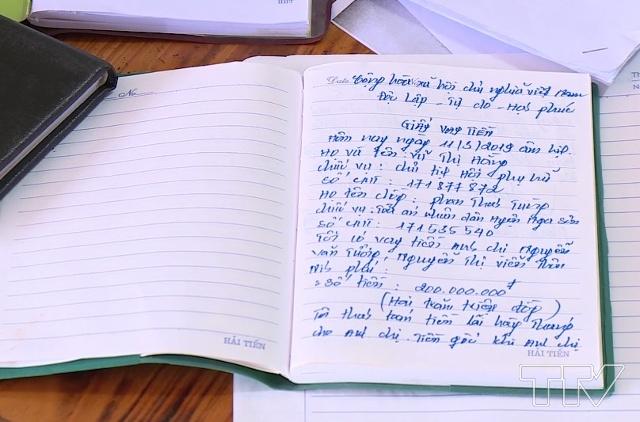 Date
Cộng hòa xã hội chủ nghĩa việt nam
Độc lập - Tự do - Hạnh phúc
Giấy vay Tiền
Hôm nay ngày 11/3/2019 âm lịch.
Họ và tên: Vũ Thị Hồng
chức vụ: chủ tịch Hội phụ nữ
Số CMT: 171877872
Họ tên chồng: phan
chức vụ: Toà án nhân dân Huyện Nga Sơn
Số CMT: 171535540
Tôi có vay tiền anh chị Nguyễn
văn Tưởng, Nguyễn Thị viễn thôn
= Số tiền: 200.000.000đ
(Hai trăm triệu đồng)
Tôi thanh toán tiền lãi hàng Tháng
cho anh chị. Tiền gốc khi anh chị
No
HẢI TIẾN
HẢI TIẾN
TTV